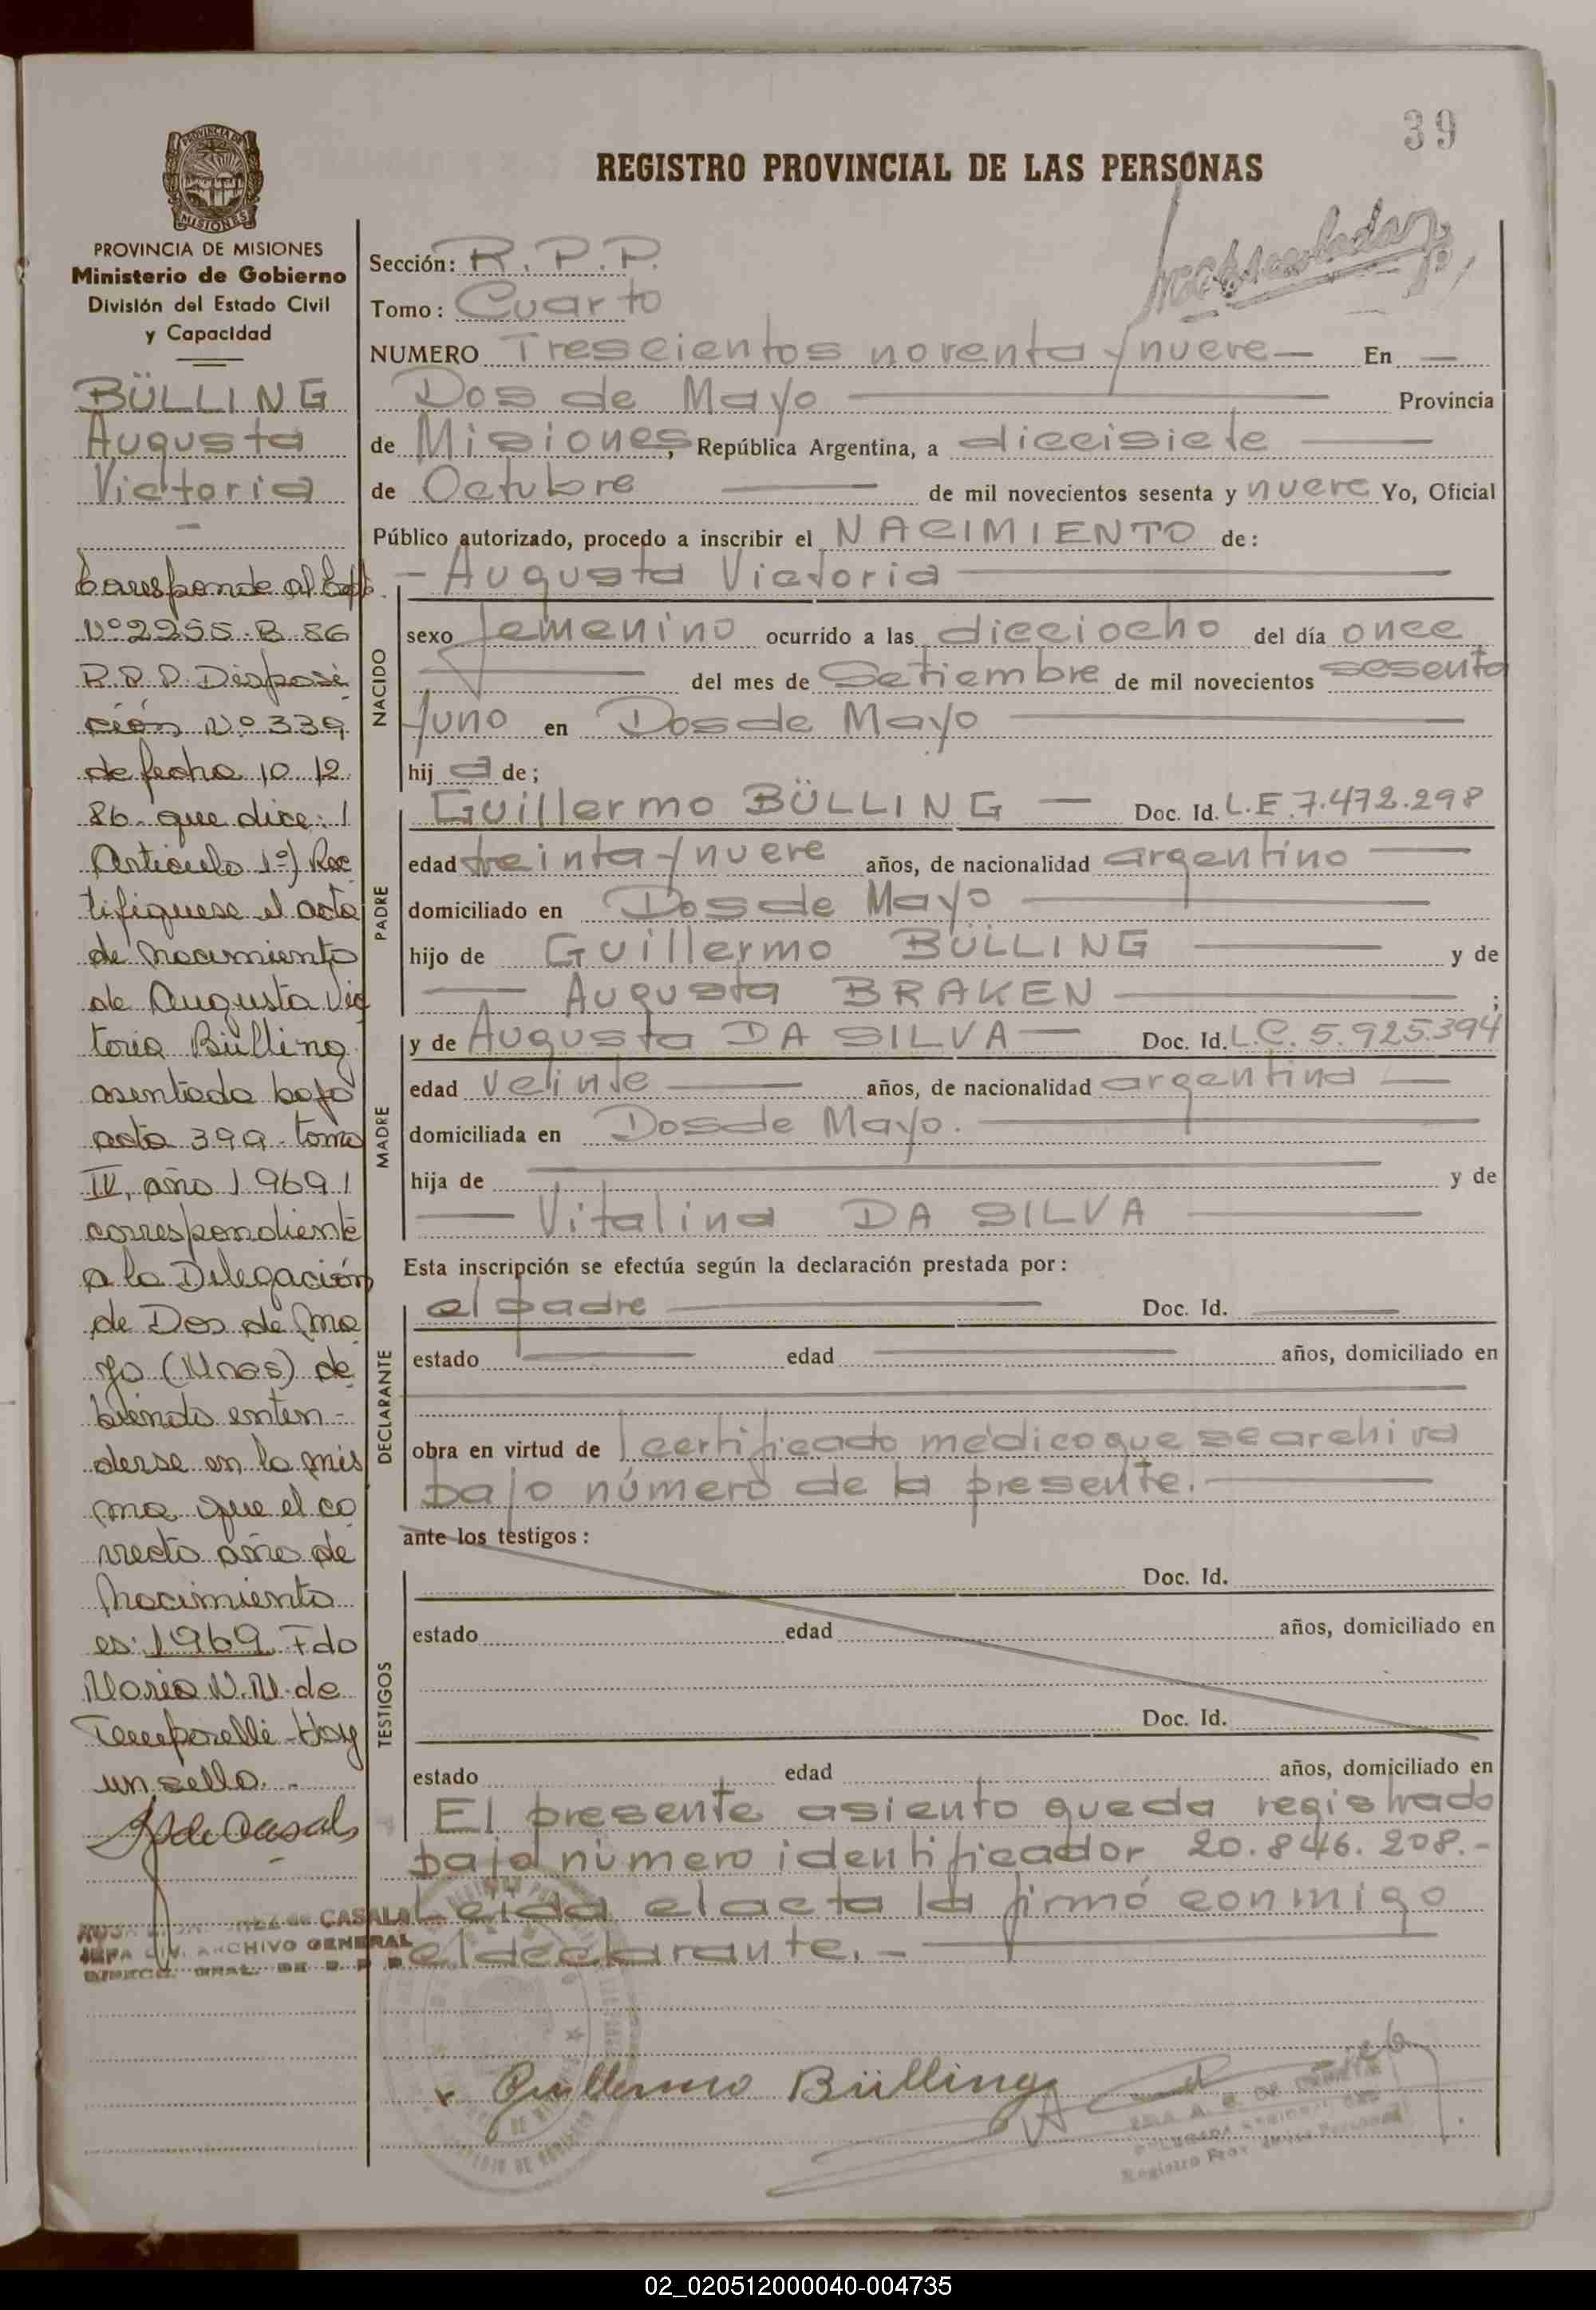 39
REGISTRO PROVINCIAL DE LAS PERSONAS
PROVINCIA DE
MISIONES
PROVINCIA DE MISIONES
Ministerio de Gobierno
División del Estado Civil
y Capacidad
BÜLLING
Augusta
Victoria
-
Corresponde al
Nº 2255-B-86
R.P.P. Disposi
ción Nº 339
de fecha 10 12
86- que dice: /
Artículo 1º) Rec
tifíquese el acta
de Nacimiento
de Augusta Vic
toria Bülling
asentada bajo
acta 399- tomo
IV, año 1969 /
correspondiente
a la Delegación
de Dos de Ma
yo (Mnes) de
biendo enten-
derse en la mis
ma que el co
rrecto año de
Nacimiento
es: 1969 Fdo
Maria N. M. de
Temporelli - Hay
un sello. -
de Casals
de CASALS
JEFA DIV. ARCHIVO GENERAL
DIRECC. GRAL. DE R. P. P.
Sección: R. P. P.
Tomo: Cuarto
NUMERO Trescientos noventa y nueve — En —
Dos de Mayo — Provincia
de Misiones, República Argentina, a diecisiete —
de Octubre — de mil novecientos sesenta y nueve Yo, Oficial
Público autorizado, procedo a inscribir el NACIMIENTO de:
- Augusta Victoria —
NACIDO
sexo femenino ocurrido a las dieciocho del día once
— del mes de Setiembre de mil novecientos sesenta
y uno en Dos de Mayo —
hija de;
PADRE
Guillermo BÜLLING — Doc. Id. L.E. 7.472.298
edad treinta y nueve años, de nacionalidad argentino —
domiciliado en Dos de Mayo —
hijo de Guillermo BÜLLING — y de
— Augusta BRAKEN — ;
MADRE
y de Augusta DA SILVA — Doc. Id. L.C. 5.925.394
edad veinte — años, de nacionalidad argentina —
domiciliada en Dos de Mayo. —
hija de — y de
— Vitalina DA SILVA —
Esta inscripción se efectúa según la declaración prestada por:
DECLARANTE
el padre — Doc. Id. —
estado — edad — años, domiciliado en
—
obra en virtud de certificado médico que se archiva
bajo número de la presente. —
ante los testigos:
TESTIGOS
Doc. Id.
estado edad años, domiciliado en
Doc. Id.
estado edad años, domiciliado en
El presente asiento queda registrado
bajo número identificador 20.846.208.-
Leída el acta la firmó conmigo
el declarante. - —
x Guillermo Bülling
Registro Prov. de las Personas
02_020512000040-004735